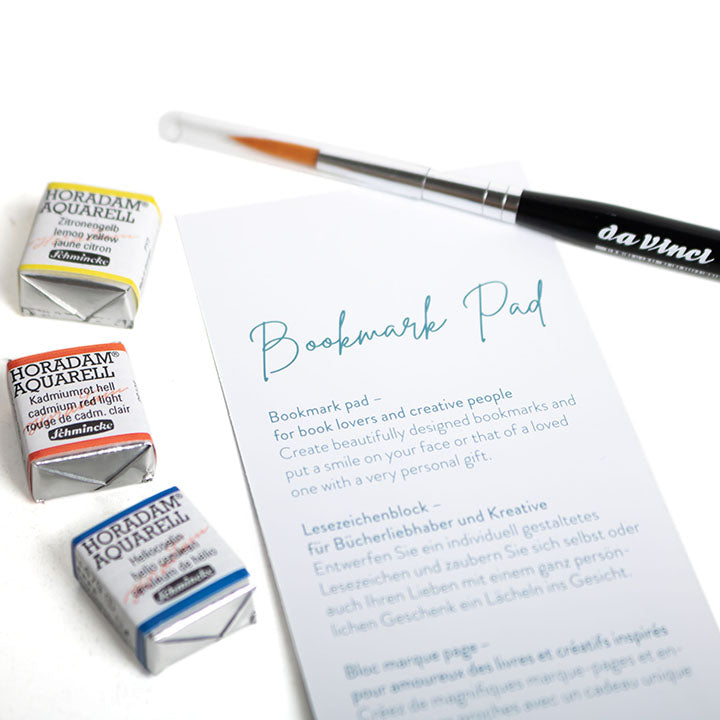 HORADAM®
AQUARELL
Zitronengelb
lemon yellow
jaune citron
Schmincke
HORADAM®
AQUARELL
Kadmiumrot hell
cadmium red light
rouge de cadm. clair
Schmincke
HORADAM®
AQUARELL
helio cerulean
céruléum de hélio
Schmincke
da Vinci
Bookmark Pad
Bookmark pad –
for book lovers and creative people
Create beautifully designed bookmarks and
put a smile on your face or that of a loved
one with a very personal gift.
Lesezeichenblock –
für Bücherliebhaber und Kreative
Entwerfen Sie ein individuell gestaltetes
Lesezeichen und zaubern Sie sich selbst oder
auch Ihren Lieben mit einem ganz persön-
lichen Geschenk ein Lächeln ins Gesicht.
Bloc marque page –
pour amoureux des livres et créatifs inspirés
Créez de magnifiques marque-pages et en-
proches avec un cadeau unique